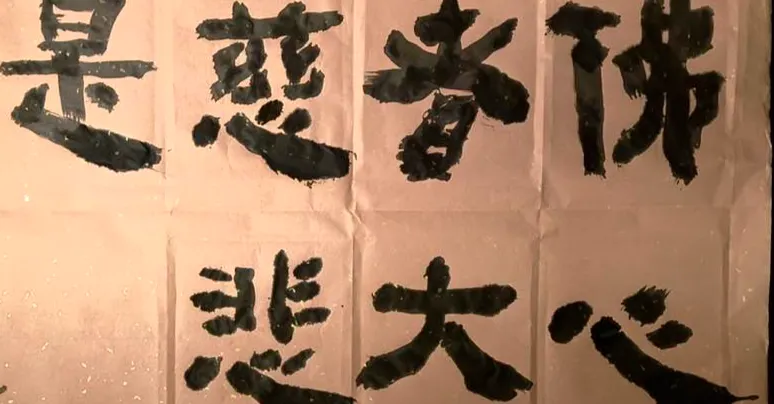 佛心
者大
慈悲
是